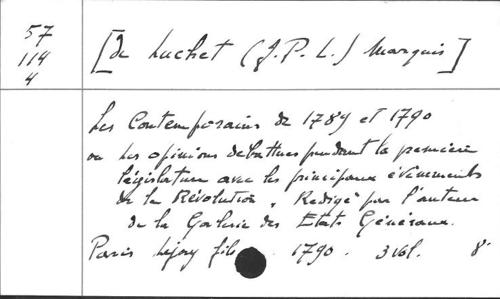 57
114
4
[de Luchet (J.P.L.) Marquis]
Les Contemporains de 1789 et 1790
ou les opinions debattues pendant la première
législature avec les principaux évènements
de la Révolution, Redigé par l'auteur
de la Galerie des Etats Généraux.
Paris Lejay fils 1790. 3 vol. 8°